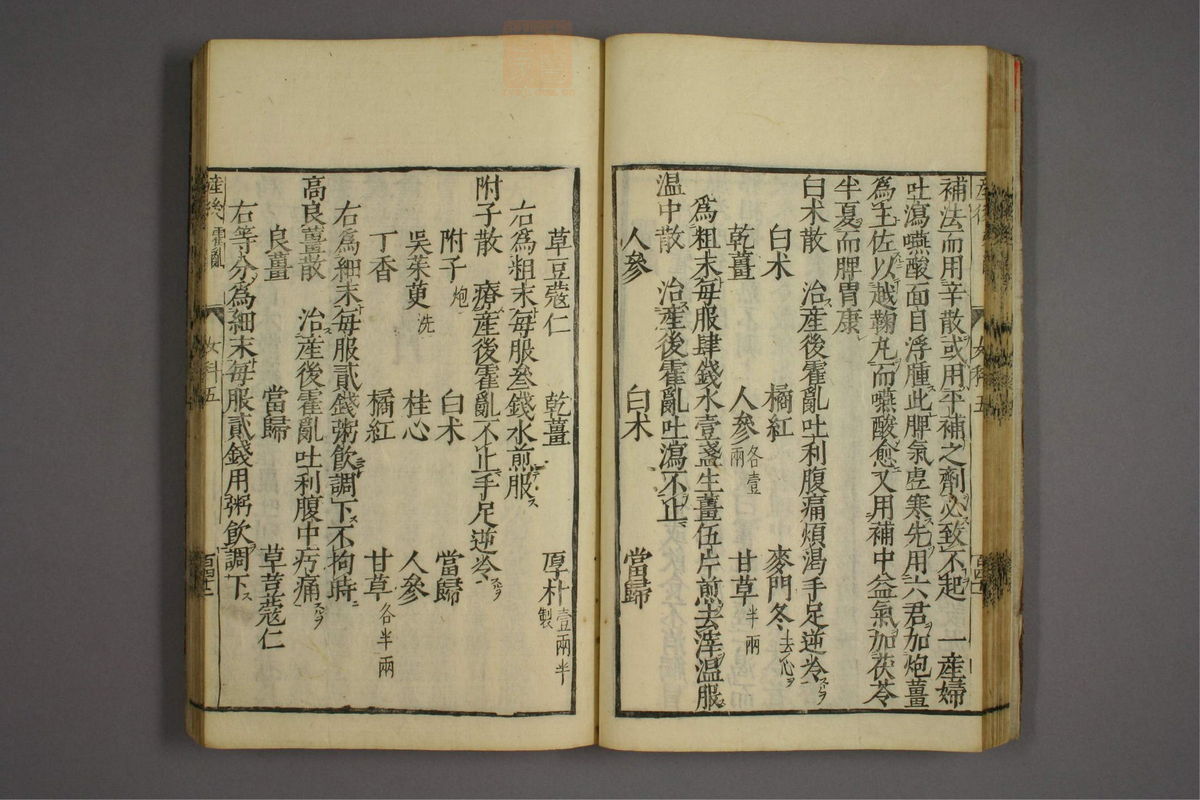 補法而用辛散或用平補之劑必致不起　一産婦
吐瀉嚥酸面目浮腫此脾氣虚寒先用六君加炮薑
爲主佐以越鞠丸而嚥酸愈又用補中益氣加茯苓
半夏而脾胃康
白术散　治産後霍亂吐利腹痛煩渴手足逆冷スルヲ
白术　橘紅　麥門冬去心ヲ
乾薑　人參各壹兩　甘草半兩
爲粗末毎服肆錢水壹盞生薑伍片煎去滓温服
温中散　治産後霍亂吐瀉不止
人參　白术　當歸
草豆蔻仁　乾薑　厚朴壹兩半製
右爲粗末毎服叄錢水煎服
附子散　療産後霍亂不止手足逆冷スルヲ
附子炮　白术　當歸
吳茱萸洗　桂心　人參
丁香　橘紅　甘草各半兩
右爲細末毎服貳錢粥飲調下不拘時
高良薑散　治産後霍亂吐利腹中㽲痛スルヲ
良薑　當歸　草荳蔻仁
右等分爲細末毎服貳錢用粥飲調下
産後　霍亂　女科五